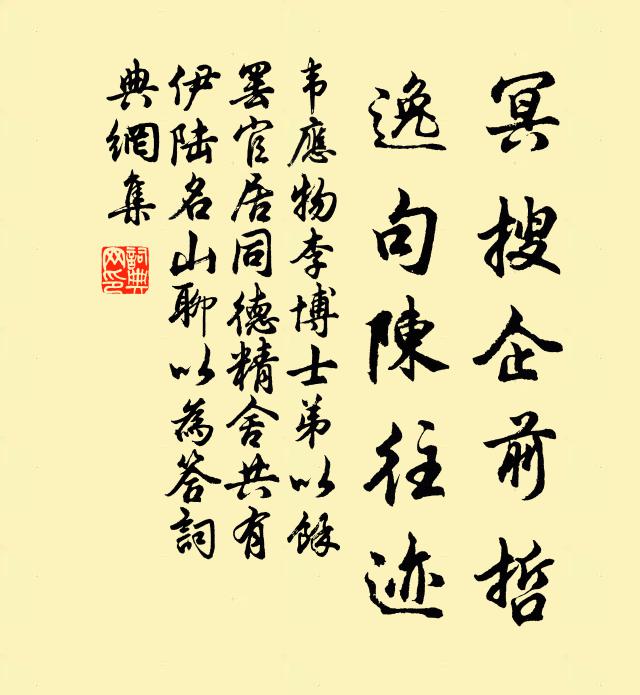 冥搜企前哲
逸句陳往迹
韦應物李博士弟以餘
罢官居同德精舍共有
伊陆名山聊以為答詞
典網集
詞典
网印